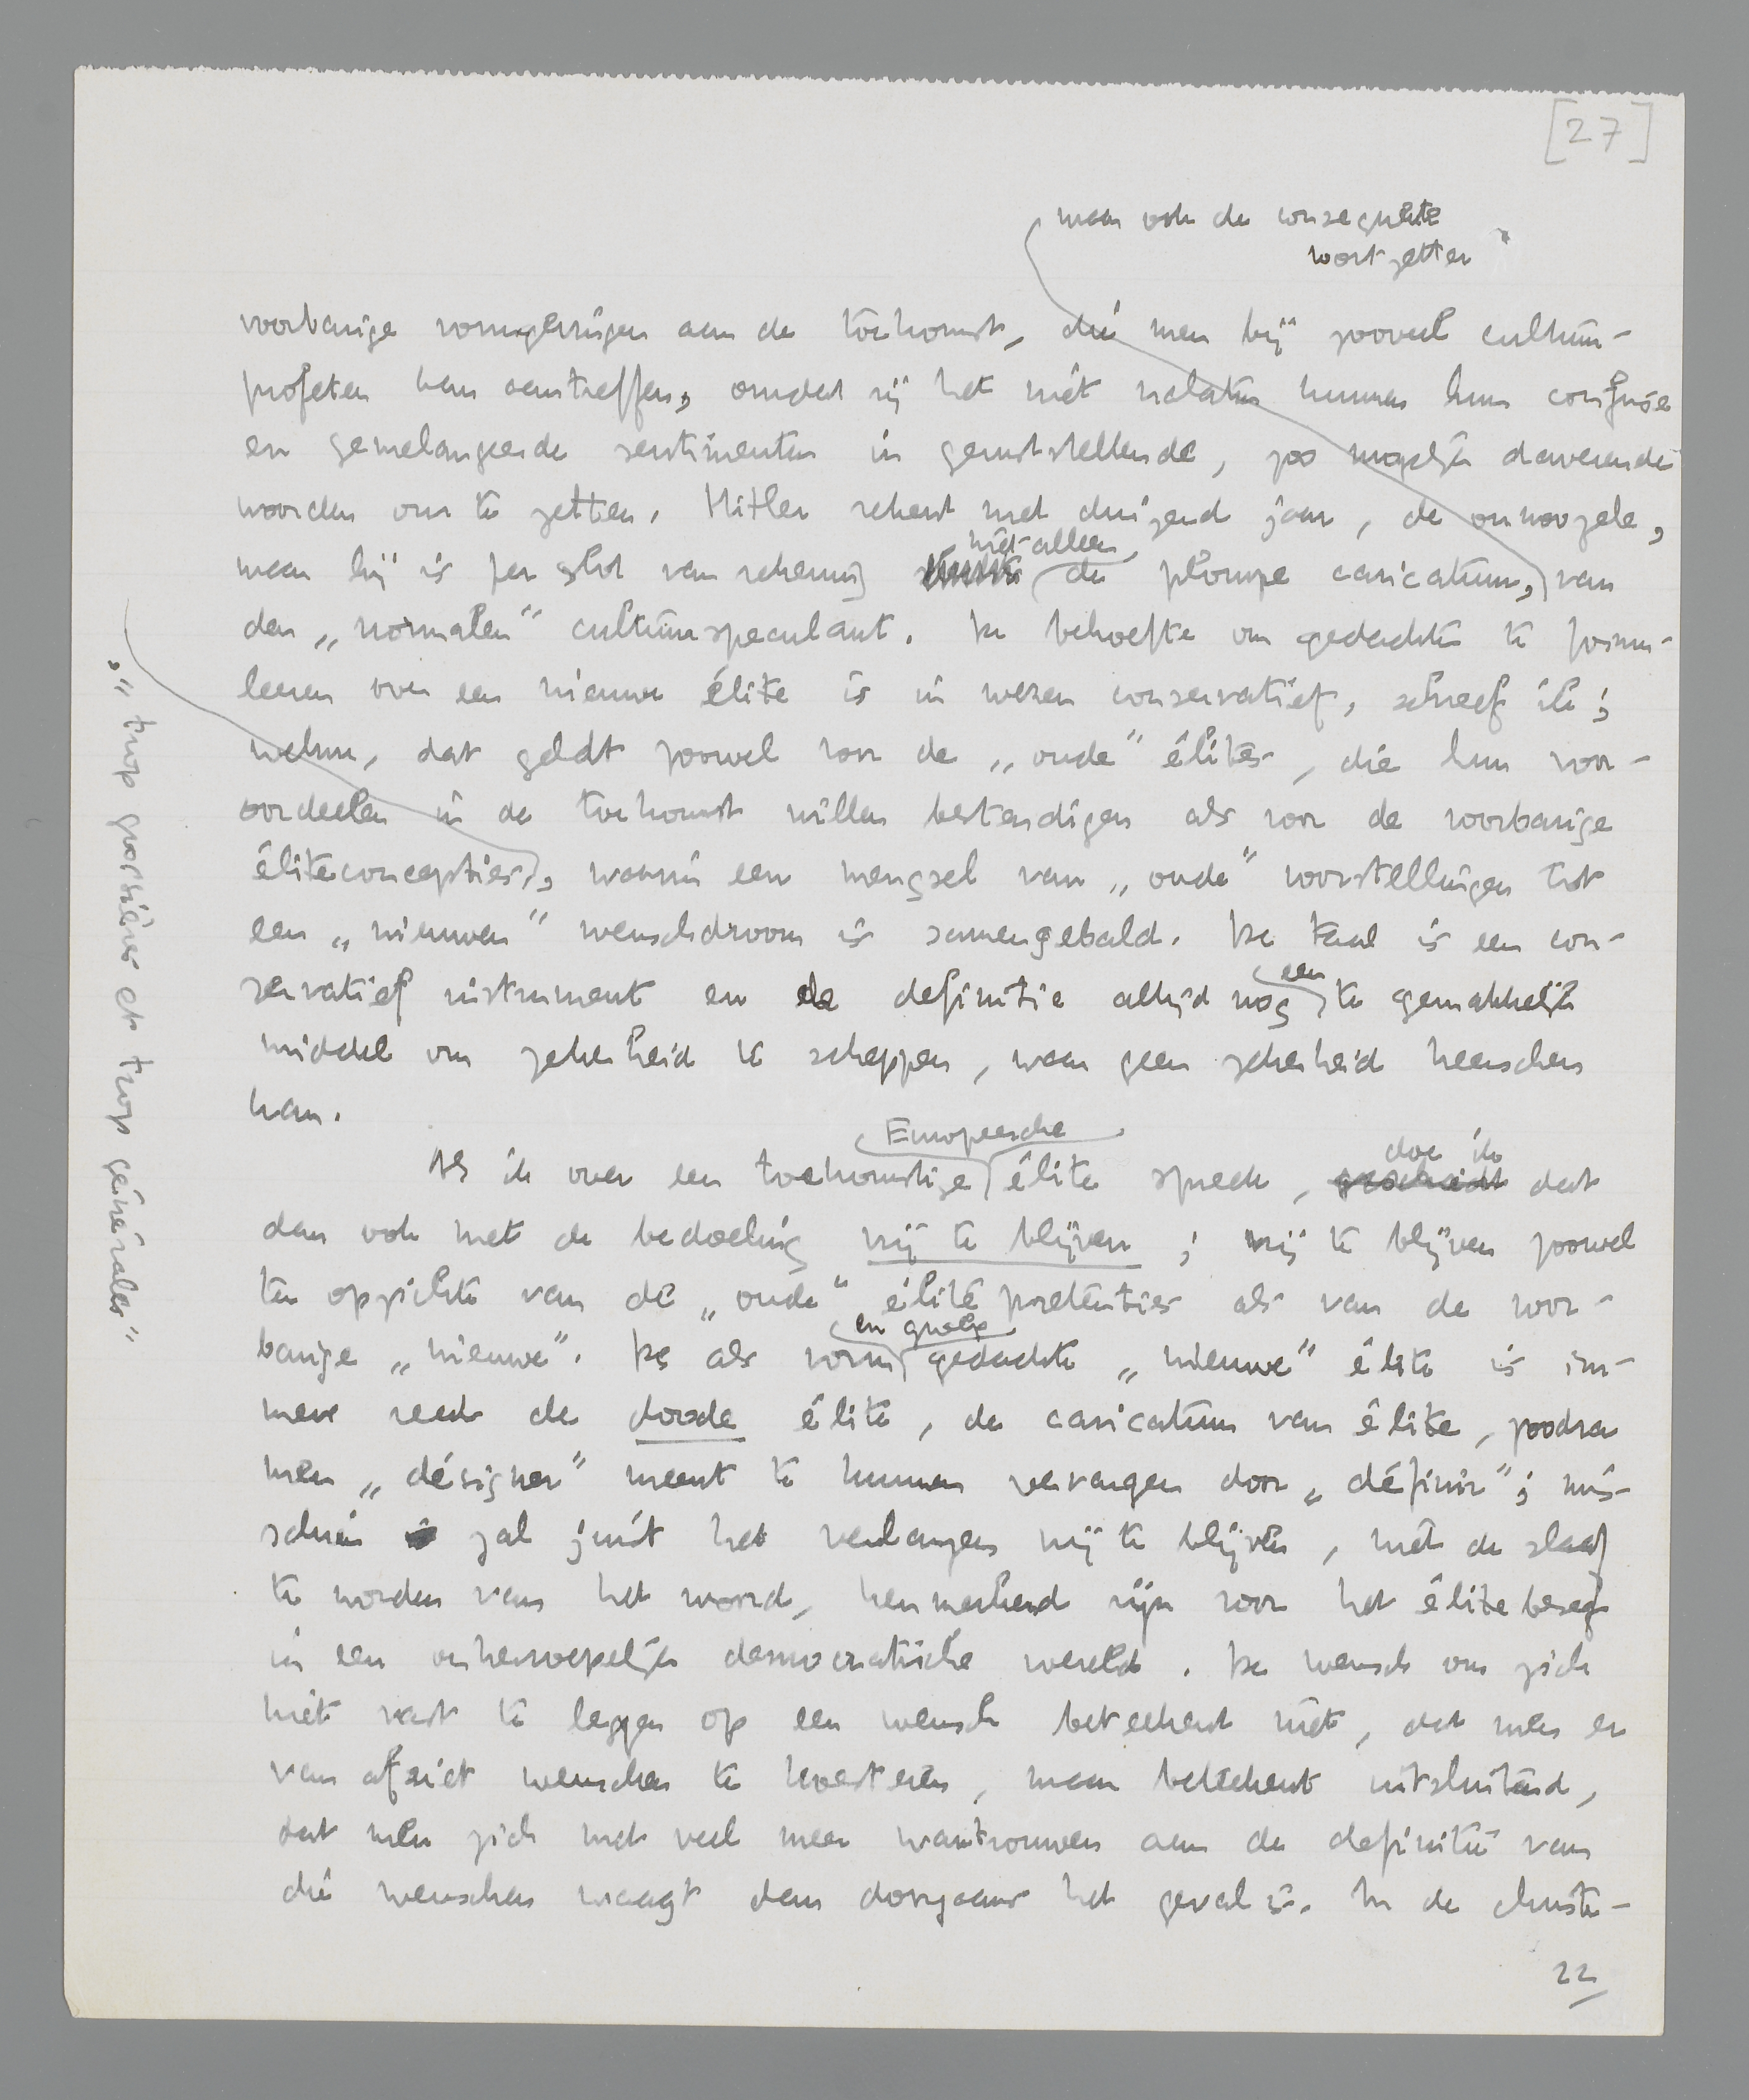 [27]
maar ook de consequente
voortzetter
voorbarige vormgevingen aan de toekomst, die men bij zooveel cultuur-
profeten kan aantreffen, omdat zij het niet nalaten kunnen hun confuse
en gemelangeerde sentimenten in geruststellende, zoo mogelijk daverende
woorden om te zetten. Hitler rekent met duizend jaar, de onnoozele,
niet alleen
maar hij is per slot van rekening de plompe caricatuur, van
den „normalen” cultuurspeculant. De behoefte om gedachten te formu-
leeren over een nieuwe élite is in wezen conservatief, schreef ik;
welnu, dat geldt zoowel voor de „oude” élites, die hun voor-
oordeelen in de toekomst willen bestendigen als voor de voorbarige
éliteconcepties, waarin een mengsel van „oude” voorstellingen tot
een „nieuwen” wenschdroom is samengebald. De taal is een con-
een
servatief instrument en de definitie altijd nog te gemakkelijk
middel om zekerheid te scheppen, waar geen zekerheid heerschen
kan.
Europeesche
doe ik
Als ik over een toekomstige élite spreek, geschiedt dat
dan ook met de bedoeling vrij te blijven; vrij te blijven zoowel
ten opzichte van de „oude” élitepretenties als van de voor-
en grosse
barige „nieuwe”. De als vorm gedachte „nieuwe” élite is im-
mers reeds de doode élite, de caricatuur van élite, zoodra
men „désigner” meent te kunnen vervangen door „définir”; mis-
schien zal juist het verlangen vrij te blijven, niet de slaaf
te worden van het woord, kenmerkend zijn voor het élitebesef
in een onherroepelijk democratische wereld. De wensch om zich
niet vast te leggen op een wensch beteekent niet, dat men er
van afziet wenschen te koesteren, maar beteekent uitsluitend,
dat men zich met veel meer wantrouwen aan de definitie van
die wenschen waagt dan doorgaans het geval is. In de christe-
22
„trop grossières et trop générales”